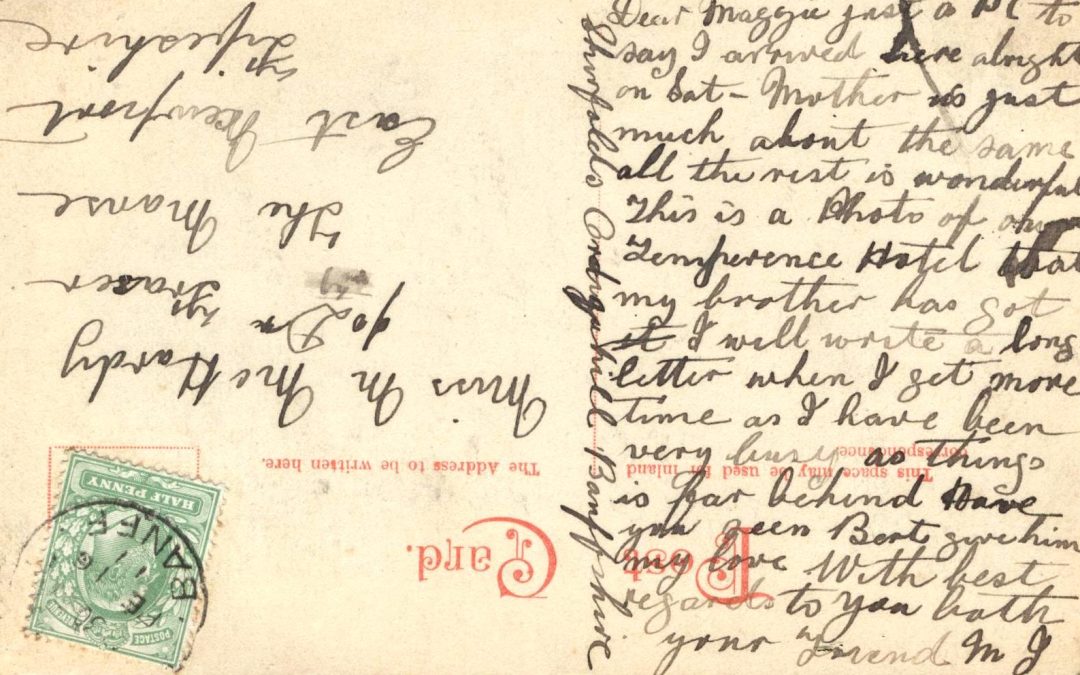 Dear Maggie just a PC to
say I arrived here alright
on Sat - Mother is just
much about the same
all the rest is wonderful
This is a Photo of our
Temperence Hotel that
my brother has got
it I will write a long
letter when I get more
time as I have been
very busy as things
is far behind Have
you seen Bert give him
my love With best
regards to you both
your Friend M J
Ordiquhill Banffshire
Post Card.
This space may be used for Inland
correspondence
The Address to be written here.
Miss M McHardy
c/o Dr Fraser
The Manse
East Newport
Fifeshire
HALF PENNY
POSTAGE
BANFF